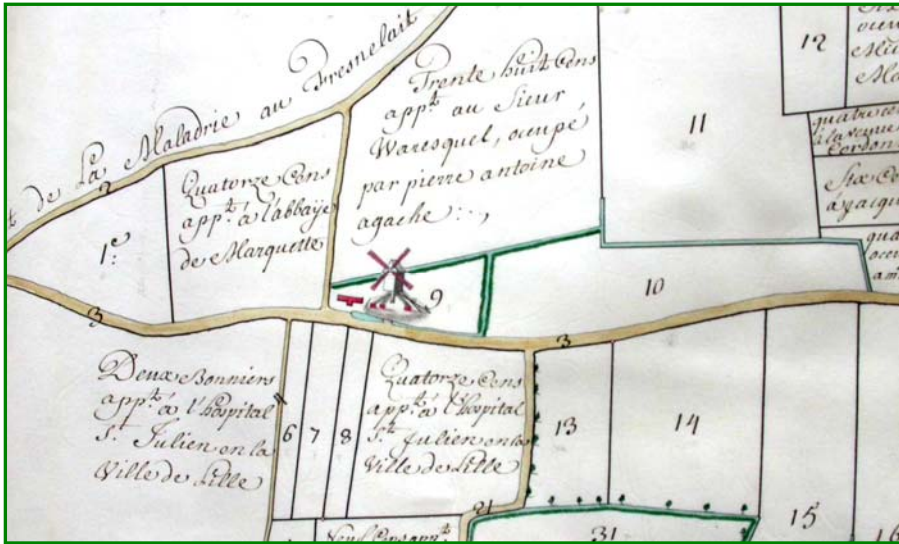 de La Maladrie au Fresnelait
2
1.e
Quatorze Cens
app.t à l'abbaÿe
de Marquette
Trente huit Cens
app.t au Sieur
Waresquel, occupé
par pierre antoine
agache
11
12
quatre ce
à la veuve
Cordon
Six Ce
a jacqu
qua
9
10
3
3
Deux Bonniers
app.t à l'hospital
S.t Julien en la
Ville de Lille
6
7
8
Quatorze Cens
app.t à l'hospital
S.t Julien en la
Ville de Lille
13
14
15
16
21
31